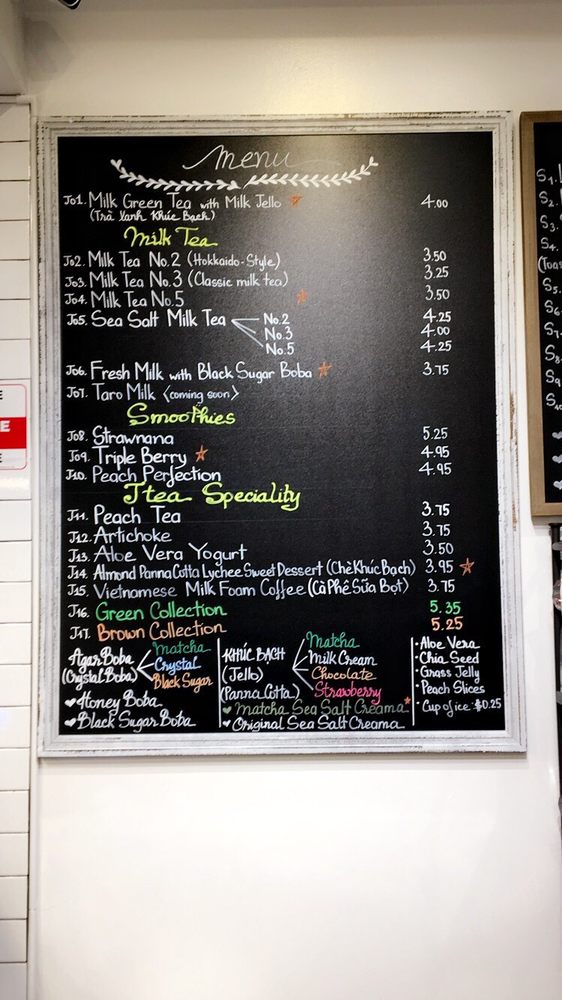 menu
J01. Milk Green Tea with Milk Jello 4.00
(Trà Xanh Khúc Bạch)
Milk Tea
J02. Milk Tea No.2 (Hokkaido-Style) 3.50
J03. Milk Tea No.3 (Classic milk tea) 3.25
J04. Milk Tea No.5 3.50
J05. Sea Salt Milk Tea No.2 4.25
No.3 4.00
No.5 4.25
J06. Fresh Milk with Black Sugar Boba 3.75
J07. Taro Milk <coming soon>
Smoothies
J08. Strawnana 5.25
J09. Triple Berry 4.95
J10. Peach Perfection 4.95
Jtea Speciality
J11. Peach Tea 3.75
J12. Artichoke 3.75
J13. Aloe Vera Yogurt 3.50
J14. Almond Panna Cotta Lychee Sweet Dessert (Chè Khúc Bạch) 3.95
J15. Vietnamese Milk Foam Coffee (Cà Phê Sữa Bọt) 3.75
J16. Green Collection 5.35
J17. Brown Collection 5.25
Agar Boba
(Crystal Boba)
Matcha
Crystal
Black Sugar
Honey Boba
Black Sugar Boba
KHÚC BẠCH
(Jello)
(Panna Cotta)
Matcha
Milk Cream
Chocolate
Strawberry
Matcha Sea Salt Creama
Original Sea Salt Creama
• Aloe Vera
• Chia Seed
• Grass Jelly
• Peach Slices
• Cup of ice: $0.25
S1.
S2.
S3.
S4.
S5.
S6.
S7.
S8.
S9.